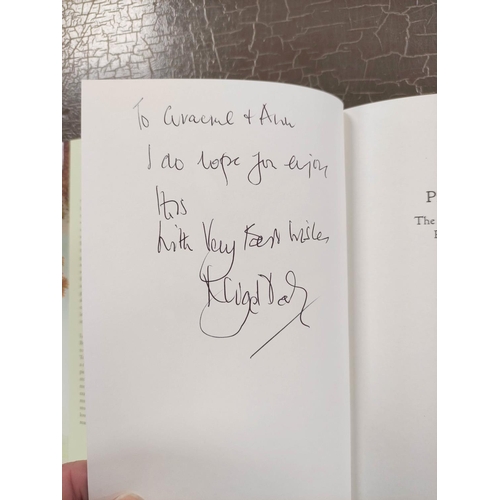 To Graeme & Ann
I do hope you enjoy
this
With Very Best Wishes
P
The